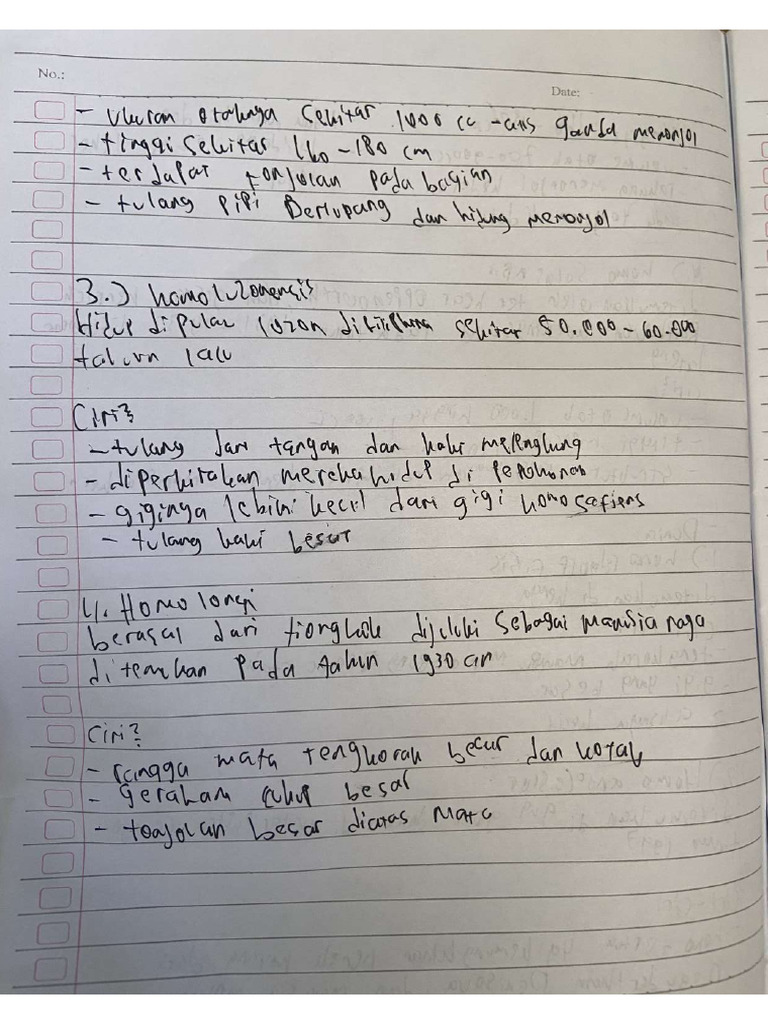 No.:
Date:
- Ukuran otaknya sekitar 1000 cc - alis ganda menonjol
- tinggi sekitar 160 - 180 cm
- terdapat tonjolan pada bagian
- tulang pipi Berlupang dan hidung menonjol
3.) homo luzonensis
Hidup dipulau luzon difilipina sekitar 50.000 - 60.000
tahun lalu
Ciri²
- tulang jari tangan dan kaki melengkung
- diperkirakan mereka hidup di pepohonan
- giginya lebih kecil dari gigi homo sapiens
- tulang kaki besar
4. Homo longi
berasal dari tiongkok dijuluki sebagai manusia naga
ditemukan pada tahun 1930 an
Ciri²
- rongga mata tengkorak besar dan kotak
- geraham cukup besar
- tonjolan besar diatas mata